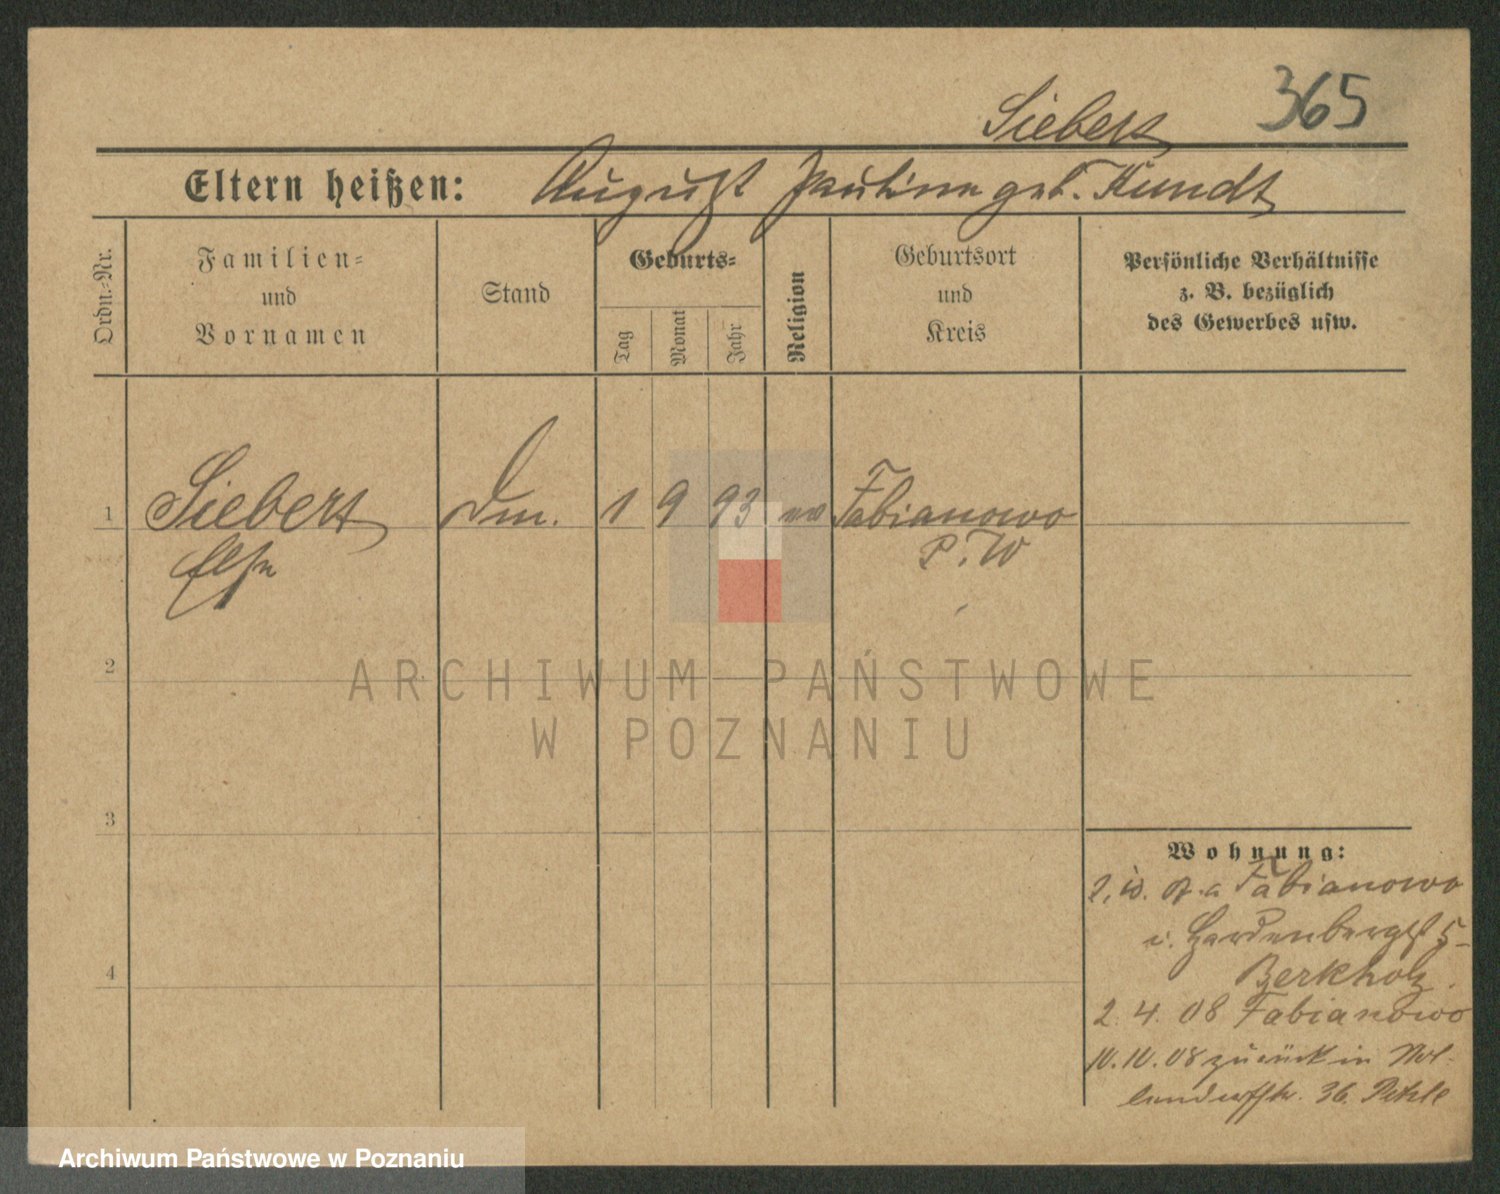 365
Siebert
Eltern heißen: August Pauline geb. Kundt
Ordn.-Nr.
Familien-
und
Vornamen
Stand
Geburts-
Tag
Monat
Jahr
Religion
Geburtsort
und
Kreis
Persönliche Verhältnisse
z. B. bezüglich
des Gewerbes usw.
1 Siebert Dm. 1 9 93 ev Fabianowo
Else P. W
2
3
4
Wohnung:
Fabianowo
Hardenbergst 5
Berkholz.
2. 4. 08 Fabianowo
10.10.08 zurück in
36.
ARCHIWUM PAŃSTWOWE
W POZNANIU
Archiwum Państwowe w Poznaniu